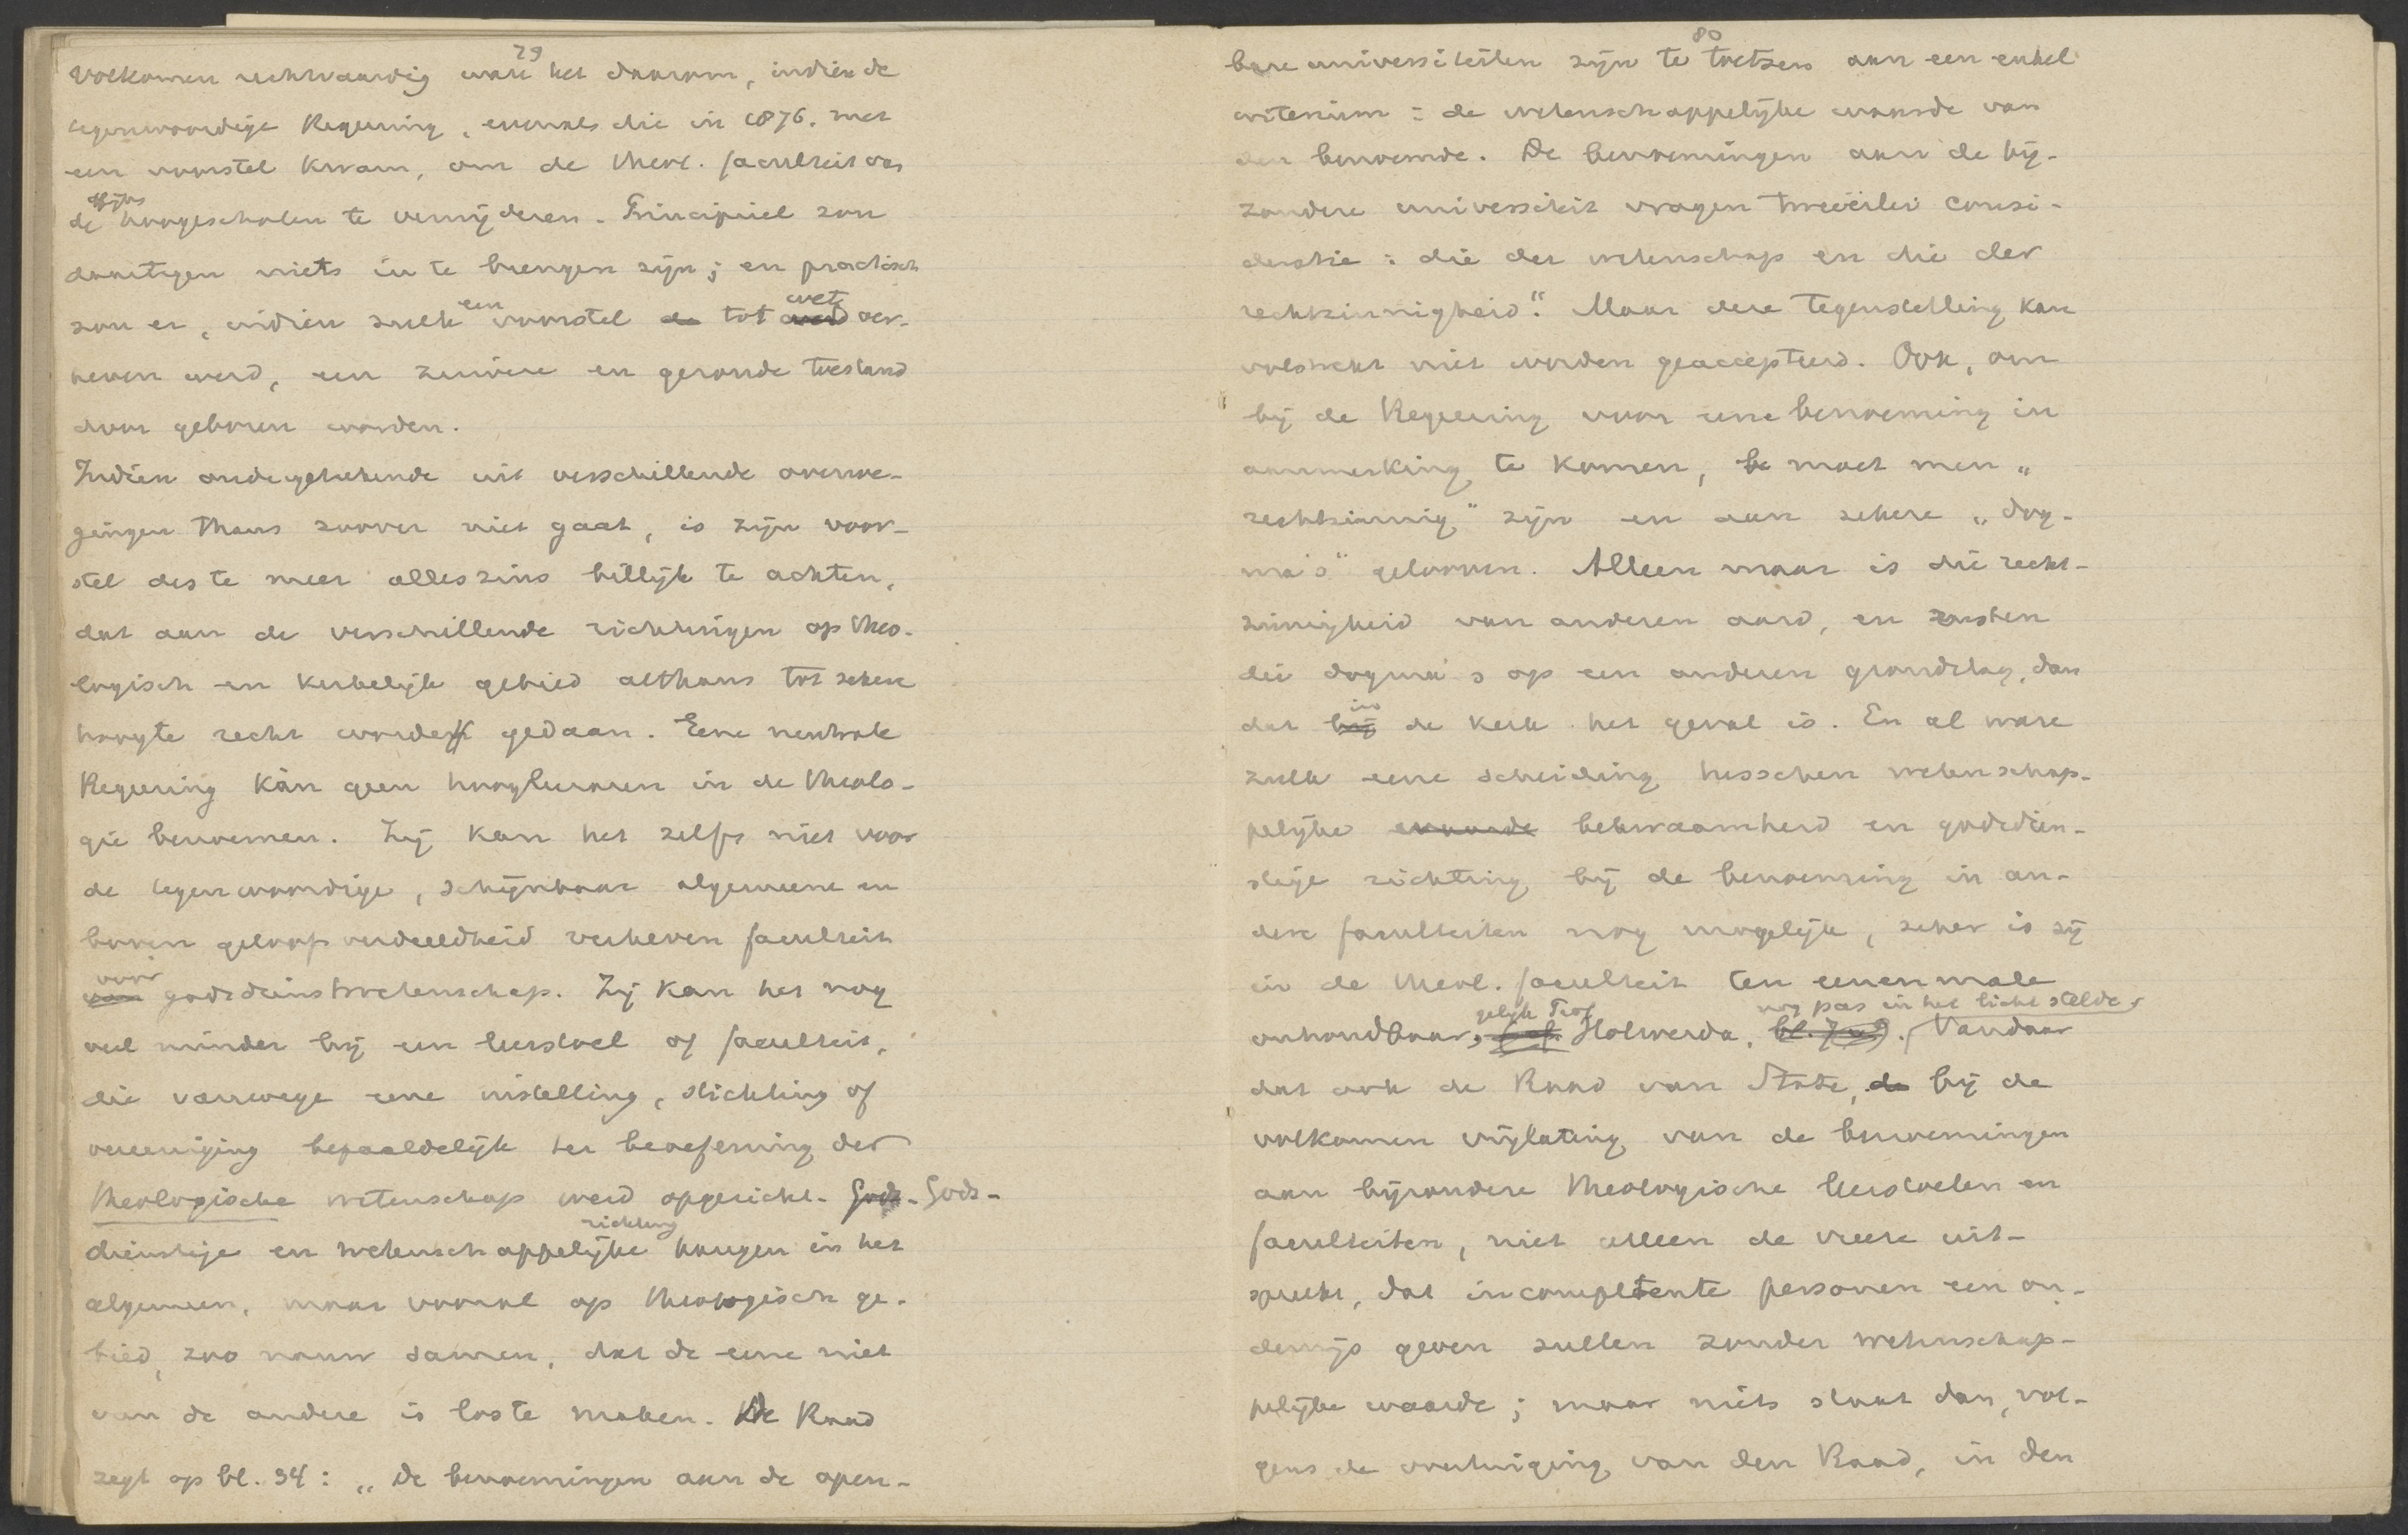 79
Volkomen rechtvaardig ware het daarom, indien de
tegenwoordige Regeering, evenals die in 1876, met
een voorstel kwam, om de theol. faculteit van
de Rijks hoogescholen te verwijderen. Principieel zou
daartegen niets in te brengen zijn; en practisch
zou er, indien zulk een voorstel de tot werd wet ver-
heven werd, een zuivere en gezonde toestand
door geboren worden.
Indien ondergeteekende uit verschillende overwe-
gingen thans zoover niet gaat, is zijn voor-
stel des te meer alleszins billijk te achten,
dat aan de verschillende richtingen op theo-
logisch en kerkelijk gebied althans tot zekere
hoogte recht worde gedaan. Eene neutrale
Regeering kàn geen hoogleeraren in de theolo-
gie benoemen. Zij kan het zelfs niet voor
de tegenwoordige, schijnbaar algemeene en
boven geloofsverdeeldheid verheven faculteit
van voor godsdienstwetenschap. Zij kan het nog
veel minder bij een leerstoel of faculteit,
die vanwege eene instelling, stichting of
vereeniging bepaaldelijk ter beoefening der
theologische wetenschap werd opgericht. Gods- Gods-
dienstige en wetenschappelijke richting hangen in het
algemeen, maar vooral op theologisch ge-
bied, zoo nauw samen, dat de eene niet
van de andere is los te maken. De Raad
zegt op bl. 34: „De benoemingen aan de open-
80
bare universiteiten zijn te toetsen aan een enkel
criterium: de wetenschappelijke waarde van
den benoemde. De benoemingen aan de bij-
zondere universiteit vragen tweeërlei consi-
deratie: die der wetenschap en die der
rechtzinnigheid." Maar deze tegenstelling kan
volstrekt niet worden geaccepteerd. Ook, om
bij de Regeering voor eene benoeming in
aanmerking te komen, be moet men „
rechtzinnig" zijn en aan zekere „dog-
ma's" gelooven. Alleen maar is die recht-
zinnigheid van anderen aard, en rusten
die dogma's op een anderen grondslag, dan
dat bij in de kerk het geval is. En al ware
zulk eene scheiding tusschen wetenschap-
pelijke waarde bekwaamheid en godsdien-
stige richting bij de benoeming in an-
dere faculteiten nog mogelijk, zeker is zij
in de theol. faculteit ten eenenmale
onhoudbaar, gelijk Prof. Holwerda, nog pas in het licht stelde. Vandaar
dat ook de Raad van State, de bij de
volkomen vrijlating van de benoemingen
aan bijzondere theologische leerstoelen en
faculteiten, niet alleen de vrees uit-
spreekt, dat incompetente personen een on-
derwijs geven zullen zonder wetenschap-
pelijke waarde; maar niets staat dan, vol-
gens de overtuiging van den Raad, in den